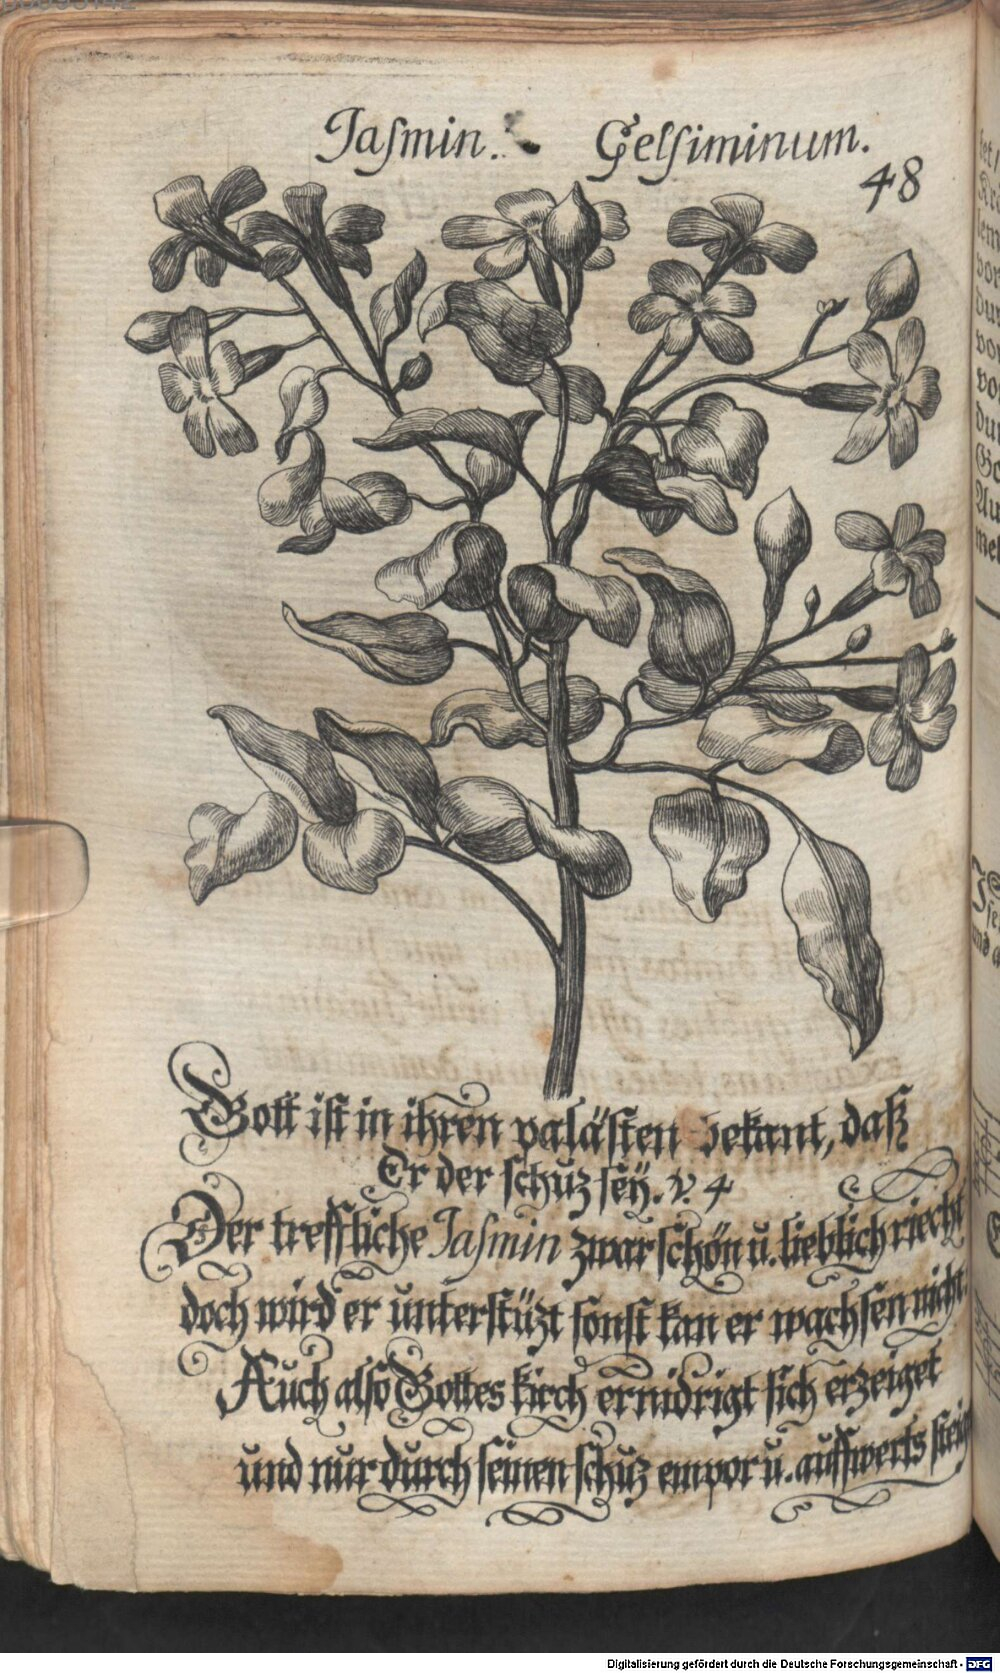 Jasmin. Gelsiminum.
48
Gott ist in ihren palästen bekant, daß
Er der schuz seÿ. v. 4
Der treffliche Jasmin zwar schön u. lieblich riecht
doch wird er unterstüzt sonst kan er wachsen nicht:
Auch also Gottes kirch ernidrigt sich erzeiget
und nur durch seinen schuz empor u. auffwerts
Digitalisierung gefördert durch die Deutsche Forschungsgemeinschaft - DFG